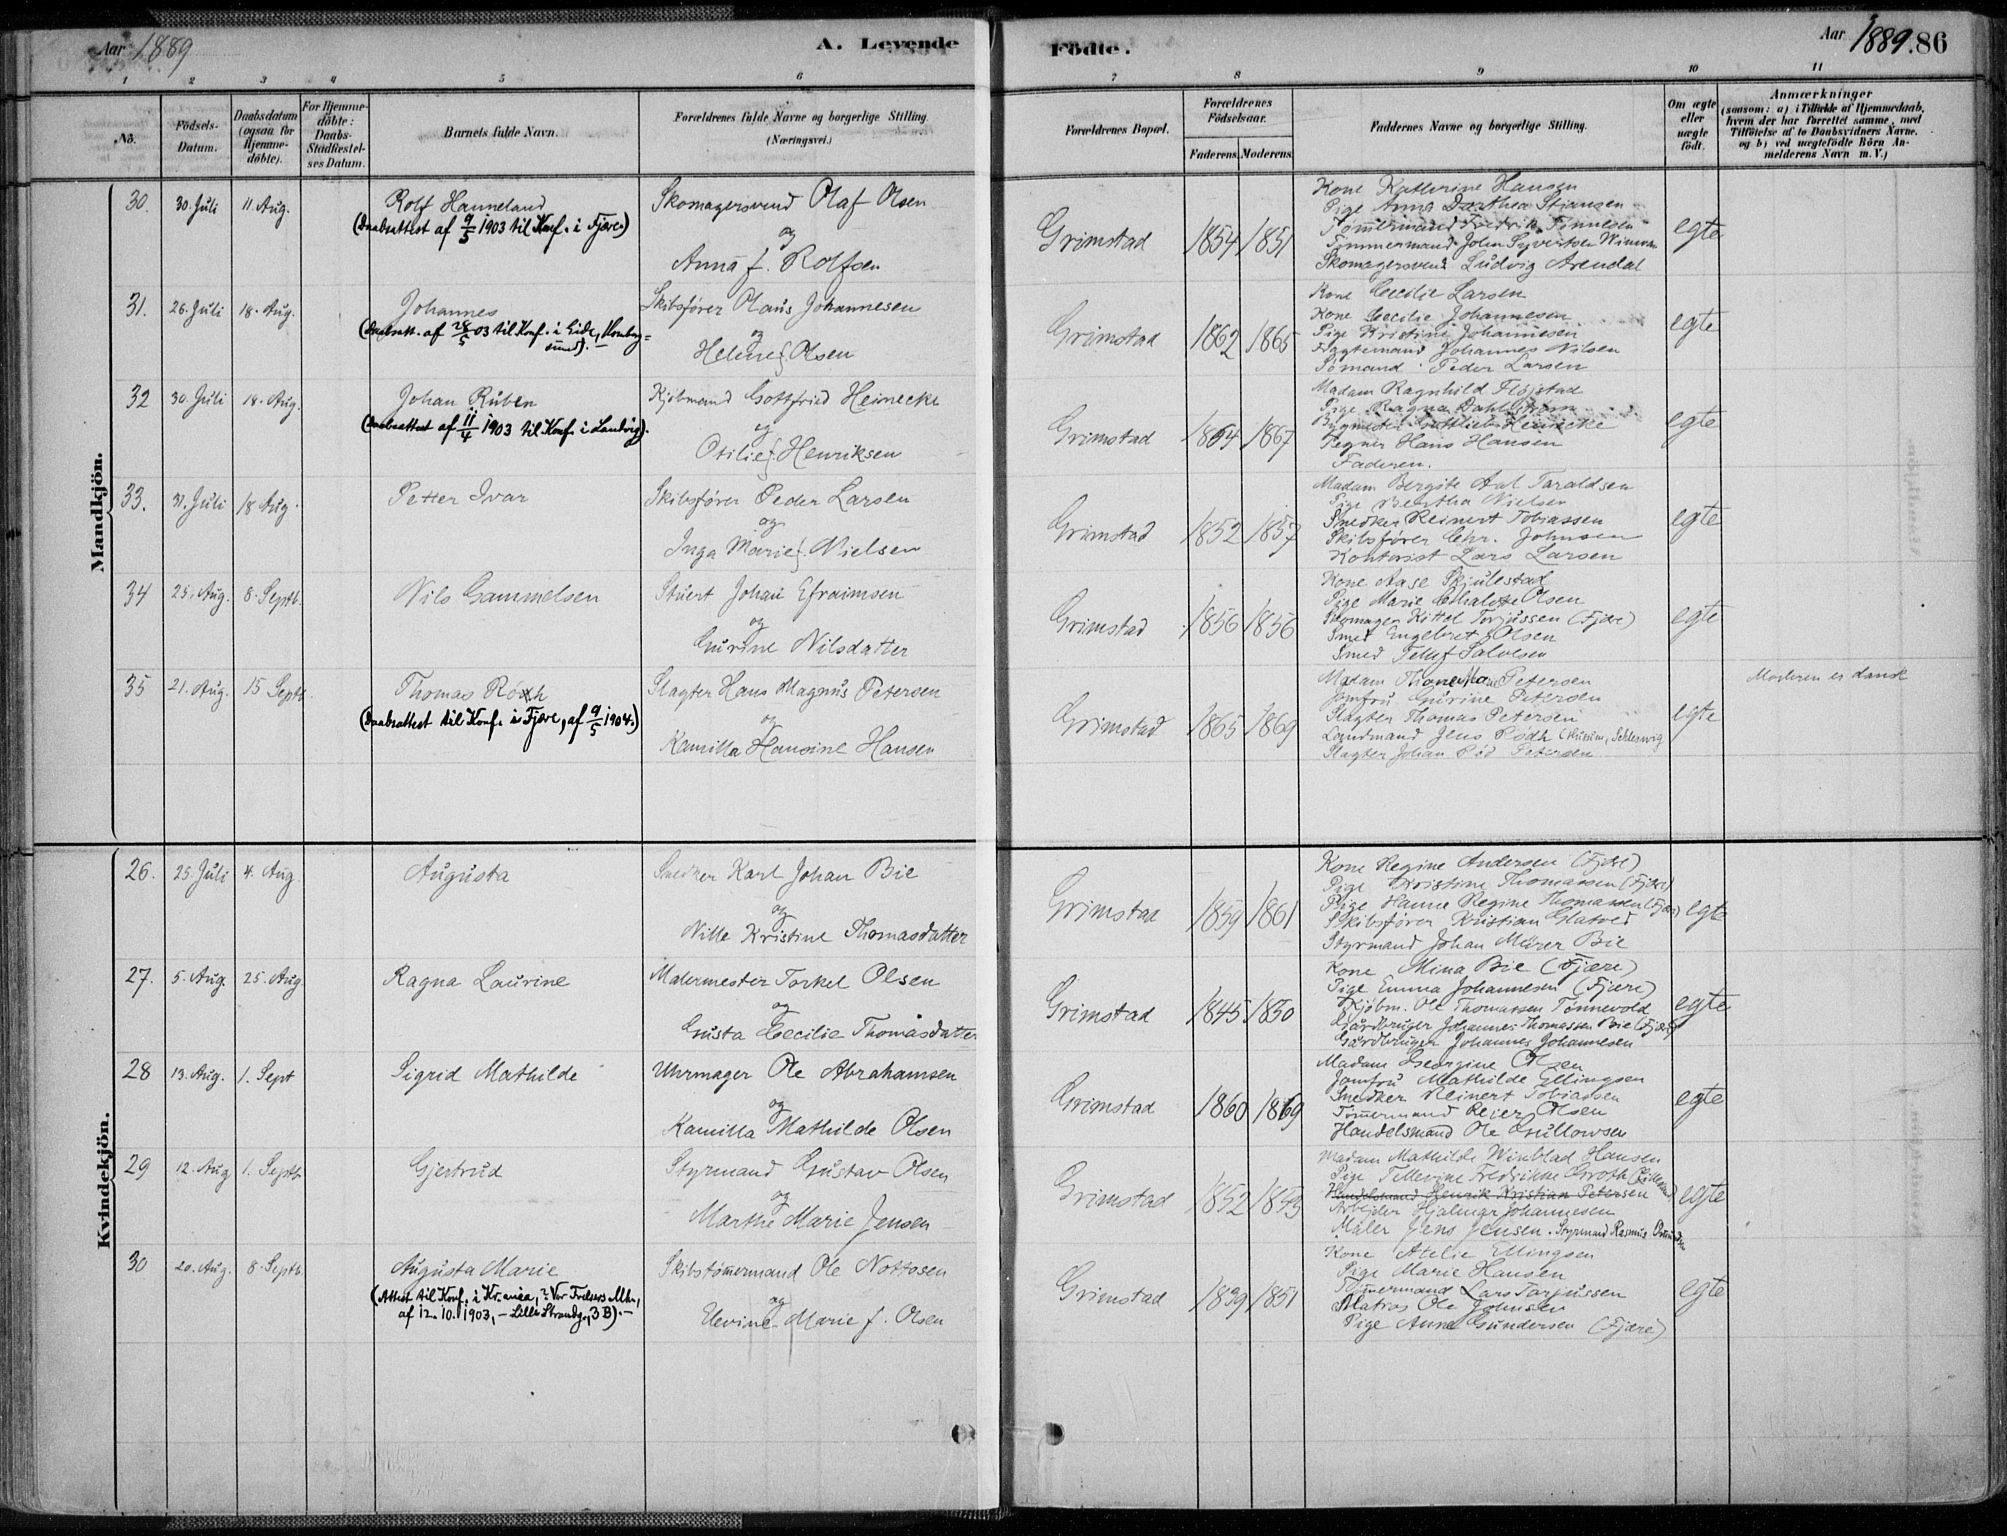 Aar 1889
A. Levende
Födte.
Aar 1889. 86
1 2 3 4 5 6 7 8 9 10 11
No.
Födsels-Datum.
Daabsdatum (ogsaa for Hjemme-döbte).
For Hjemme-döbte: Daabs-Stadfæstel-ses Datum.
Barnets fulde Navn.
Forældrenes fulde Navne og borgerlige Stilling. (Næringsvei.)
Forældrenes Bopæl.
Forældrenes Födselsaar.
Faderens. Moderens.
Faddernes Navne og borgerlige Stilling.
Om ægte eller uægte født.
Anmærkninger
(saasom: a) i Tilfælde af Hjemmedaab, hvem der har forrettet samme, med Tilföielse af to Daabsvidners Navne. og b) ved uægtefödte Börn Anmelderens Navn m. V.)
Mandkjön.
30. 30. Juli 11 Aug. Rolf Hanneland
(Daabsattest af 9/5 1903 til Konf. i Fjære.)
Skomagersvend Olaf Olsen
og
Anna f. Rolfsen
Grimstad 1854 1851
Kone Kathrine Hansen
Pige Anna Dorthea Stiansen
Tømmermand Fredrik Tønnesen
Tømmermand John Syvertsen
Skomagersvend Ludvig Arendal
egte
31. 26. Juli 18. Aug. Johannes
(Daabsatt. af 28/5 03 til Konf. i Eide, Homborsund).
Skibsfører Olaus Johannesen
og
Helene f. Olsen
Grimstad 1862 1865
Kone Cecilie Larsen
Kone Cecilie Johannesen
Pige Kristine Johannesen
Johannes Nilsen
Sømand Peder Larsen
egte
32 30. Juli 18. Aug. Johan Ruben
(Daabsattest af 11/4 1903 til Konf. i Landvig).
Kjøbmand Gottfried Heinecke
og
Otilie f. Henriksen
Grimstad 1864 1867
Madam Ragnhild Fløistad
Pige Ragna Dahlstrøm
Bygmester Gottlieb Heinecke
Hans Hansen
Faderen.
egte
33. 31. Juli 18 Aug. Petter Ivar
Skibsfører Peder Larsen
og
Inga Marie f. Nielsen
Grimstad 1852 1857
Madam Bergite Taraldsen
Pige Bertha Nielsen
Snedker Reinert Tobiassen
Skibsfører Chr. Johnsen
Kontorist Lars Larsen
egte
34 25. Aug. 8. Septb. Nils Gammelsen
Stuert Johan Efraimsen
og
Gurine Nilsdatter
Grimstad 1856 1856
Kone Aase Skjulestad
Pige Marie Olsen
Skomager Kittel Torjussen (Fjære)
Smed Engebret Olsen
Smed Tellef Salvesen
egte
35 21. Aug. 15 Septb. Thomas
(Daabsattest til Konf. i Fjære, af 9/5 1904.)
Slagter Hans Magnus Petersen
og
Kamilla Hansine Hansen
Grimstad 1865 1869
Madam Petersen
Jomfru Gurine Petersen
Slagter Thomas Petersen
Landmand Jens Rødh (Husum, Schleswig
Slagter Johan Petersen
egte
Moderen er dansk
Kvindekjön.
26. 25. Juli 4. Aug. Augusta
Snedker Karl Johan Bie
og
Nille Kristine Thomasdatter
Grimstad 1859 1861
Kone Regine Andersen (Fjære)
Pige Kristine Thomassen (Fjære)
Pige Hanne Regine Thomassen (Fjære)
Skibsfører Kristian Glatved
Styrmand Johan Mürer Bie
egte
27. 5. Aug. 25. Aug. Ragna Laurine
Malermester Torkel Olsen
og
Gusta Cecilie Thomasdatter
Grimstad 1845 1850
Kone Mina Bie (Fjære)
Pige Emma Johannesen (Fjære)
Kjøbm. Ole Thomassen Tønnevold
Gårdbruger Johannes Thomassen Bie (Fjære)
Gårdbruger Johannes Johannesen
egte
28 13. Aug. 1. Sept Sigrid Mathilde
Uhrmager Ole Abrahamsen
og
Kamilla Mathilde Olsen
Grimstad 1860 1869
Madam Georgine Olsen
Jomfru Mathilde Ellingsen
Snedker Reinert Tobiassen
Tømmermand Reier Olsen
Handelsmand Ole Gullowsen
egte
29 12. Aug 1. Septb. Gjertrud
Styrmand Gustav Olsen
og
Marthe Marie Jensen
Grimstad 1852 1853
Madam Mathilde Winblad Hansen
Pige Tellevine Fredrikke Groth
Handelsmand Henrik Kristian Petersen
Arbeider Hjalmar Johannesen
Maler Jens Jensen. Styrmand Rasmus
egte
30 20. Aug. 8. Septb. Augusta Marie
(Attest til Konf. i Kr.ania, Vor Frelsers Mh.,
af 12. 10. 1903, – Lille Strandg., 3 B). –
Skibstømmermand Ole Nottosen
og
Marie f. Olsen
Grimstad 1839 1851
Kone Atelie Ellingsen
Pige Marie Hansen
Tømmermand Lars Torjussen
Matros Ole Johnsen
Pige Anne Gundersen (Fjære)
egte